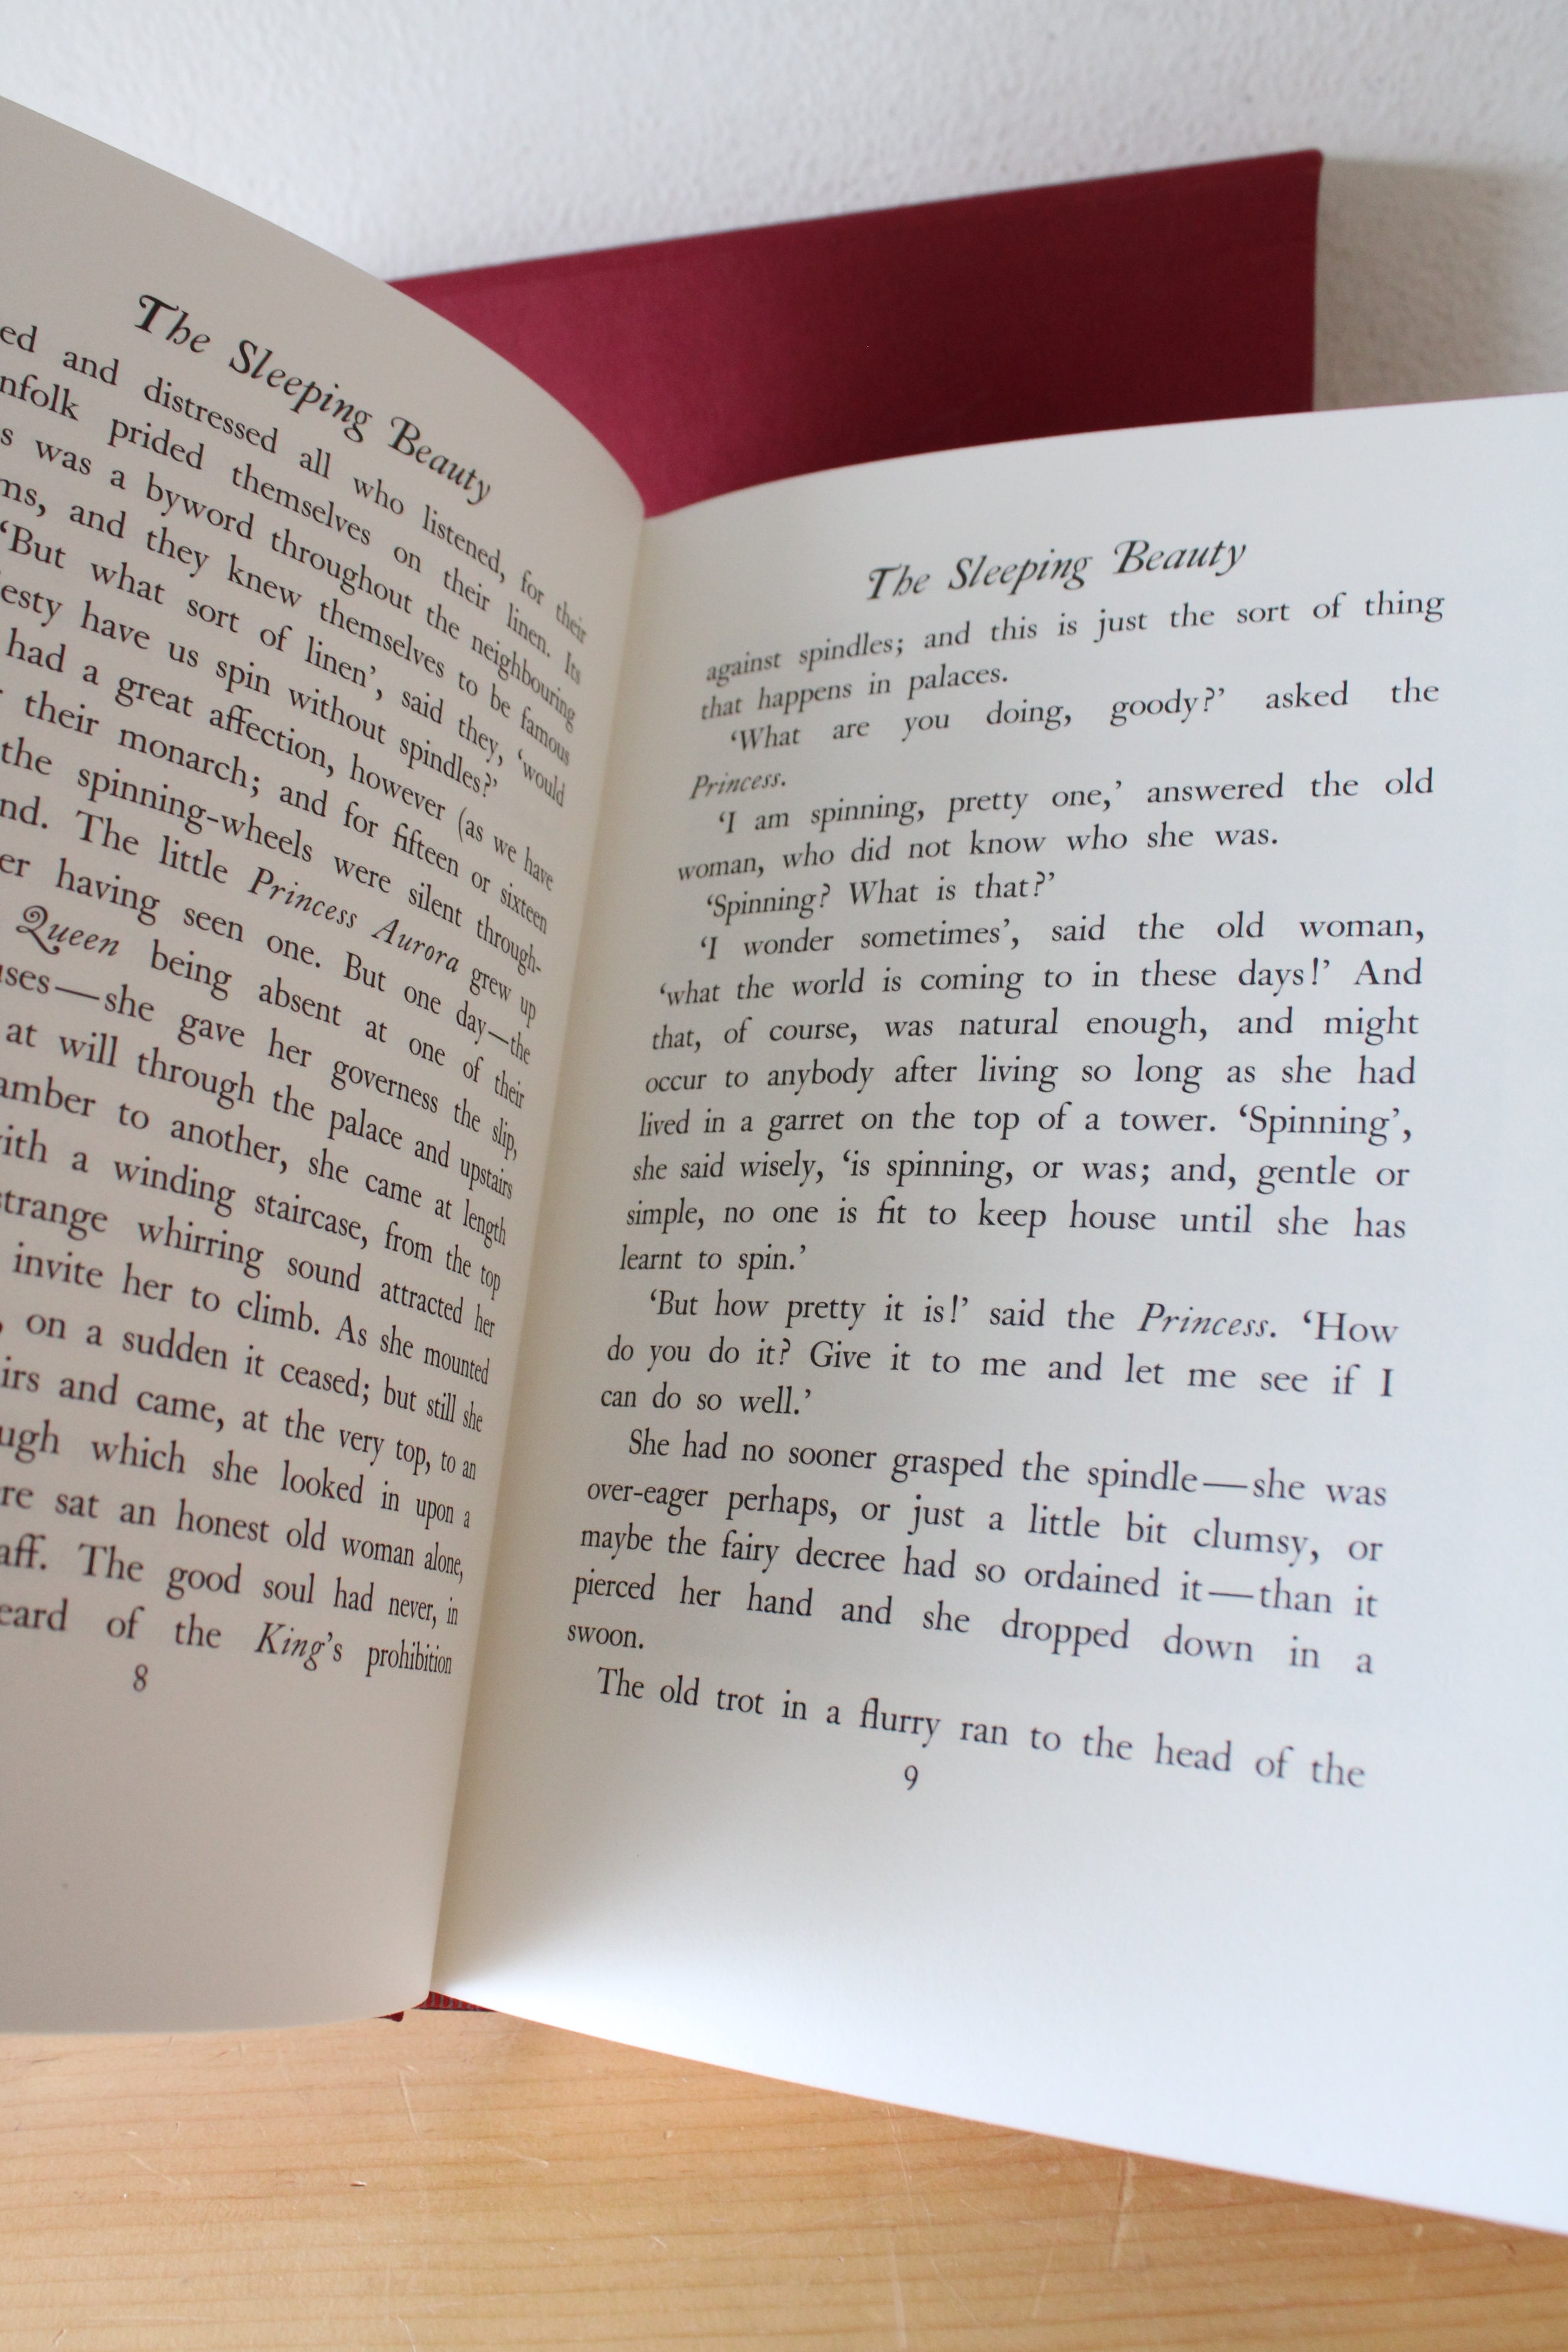 The Sleeping Beauty
and distressed all who listened, for their
prided themselves on their linen. Its
was a byword throughout the neighbouring
and they knew themselves to be famous
‘But what sort of linen’, said they, ‘would
have us spin without spindles?’
had a great affection, however (as we have
their monarch; and for fifteen or sixteen
the spinning-wheels were silent through-
The little Princess Aurora grew up
having seen one. But one day—the
Queen being absent at one of their
—she gave her governess the slip,
at will through the palace and upstairs
to another, she came at length
a winding staircase, from the top
strange whirring sound attracted her
invite her to climb. As she mounted
on a sudden it ceased; but still she
and came, at the very top, to an
which she looked in upon a
sat an honest old woman alone,
The good soul had never, in
of the King’s prohibition
8
The Sleeping Beauty
against spindles; and this is just the sort of thing
that happens in palaces.
‘What are you doing, goody?’ asked the
Princess.
‘I am spinning, pretty one,’ answered the old
woman, who did not know who she was.
‘Spinning? What is that?’
‘I wonder sometimes’, said the old woman,
‘what the world is coming to in these days!’ And
that, of course, was natural enough, and might
occur to anybody after living so long as she had
lived in a garret on the top of a tower. ‘Spinning’,
she said wisely, ‘is spinning, or was; and, gentle or
simple, no one is fit to keep house until she has
learnt to spin.’
‘But how pretty it is!’ said the Princess. ‘How
do you do it? Give it to me and let me see if I
can do so well.’
She had no sooner grasped the spindle—she was
over-eager perhaps, or just a little bit clumsy, or
maybe the fairy decree had so ordained it—than it
pierced her hand and she dropped down in a
swoon.
The old trot in a flurry ran to the head of the
9